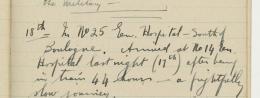 the military —
18th In No 25 Gen. Hospital – South of
Boulogne. Arrived at No 14 Gen.
Hospital last night (17th) after being
in train 44 hours – a frightfully
slow journey.